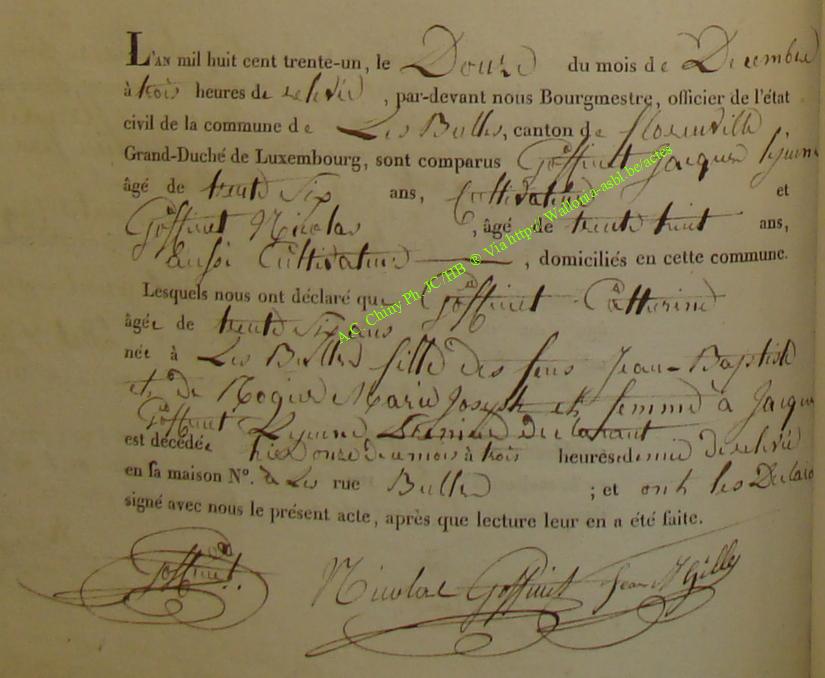 L'AN mil huit cent trente-un, le Douze du mois de Decembre
à trois heures de relevée, par-devant nous Bourgmestre, officier de l'état
civil de la commune de Les Bulles, canton de florenville,
Grand-Duché de Luxembourg, sont comparus Goffinet Jacques
âgé de trente Six ans, Cultivateur et
Goffinet Nicolas, âgé de trente huit ans,
aussi Cultivateur, domiciliés en cette commune.
Lesquels nous ont déclaré que Goffinet Catherine
âgée de trente Six ans
née à Les Bulles fille des feus Jean-Baptiste
et de Marie Joseph et femme à Jacques
Goffinet declarant
est décédée hier onze du mois à trois heures demie de relevée
en sa maison N°. à Les rue Bulles ; et ont les Declara
signé avec nous le présent acte, après que lecture leur en a été faite.
Goffinet Nicolas Goffinet Gilles
A.C. Chiny Ph. JC /HB ® Via http:// Wallonia-asbl.be/actes